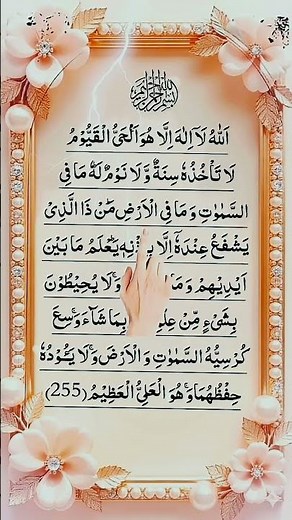 بسم الله الرحمن الرحيم
اَللّٰهُ لَاۤ اِلٰهَ اِلَّا هُوَ اَلْحَیُّ الْقَیُّوْمُ
لَا تَاْخُذُهٗ سِنَةٌ وَّ لَا نَوْمٌ لَهٗ مَا فِی
السَّمٰوٰتِ وَ مَا فِی الْاَرْضِ مَنْ ذَا الَّذِیْ
یَشْفَعُ عِنْدَهٗۤ اِلَّا یَعْلَمُ مَا بَیْنَ
اَیْدِیْهِمْ وَ وَ لَا یُحِیْطُوْنَ
بِشَیْءٍ مِّنْ بِمَا شَآءَ وَسِعَ
كُرْسِیُّهُ السَّمٰوٰتِ وَ الْاَرْضَ وَ لَا یَـُٔوْدُهٗ
حِفْظُهُمَا وَ هُوَ الْعَلِیُّ الْعَظِیْمُ (255)